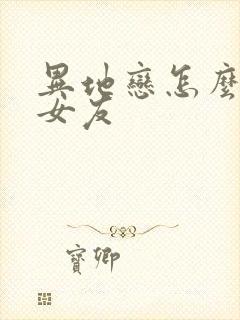 異地戀怎麼
女友
寶卿